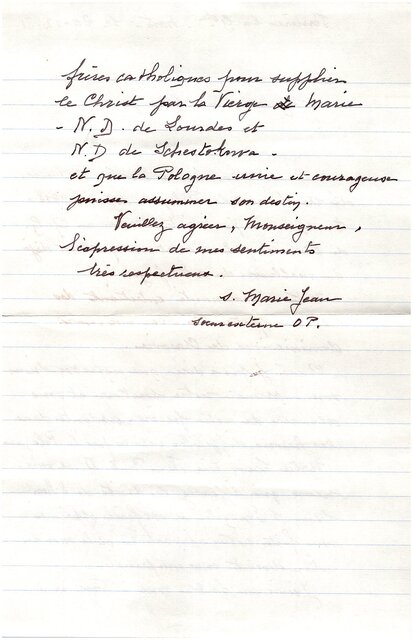 frères catholiques pour supplier
le Christ par la Vierge Marie
- N. D. de Lourdes et
N. D de Schestokowa -
et que la Pologne unie et courageuse
puisse assummer son destin.
Veuillez agréer, Monseigneur,
l'expression de mes sentiments
très respectueux.
S. Marie Jean
soeur externe OP.